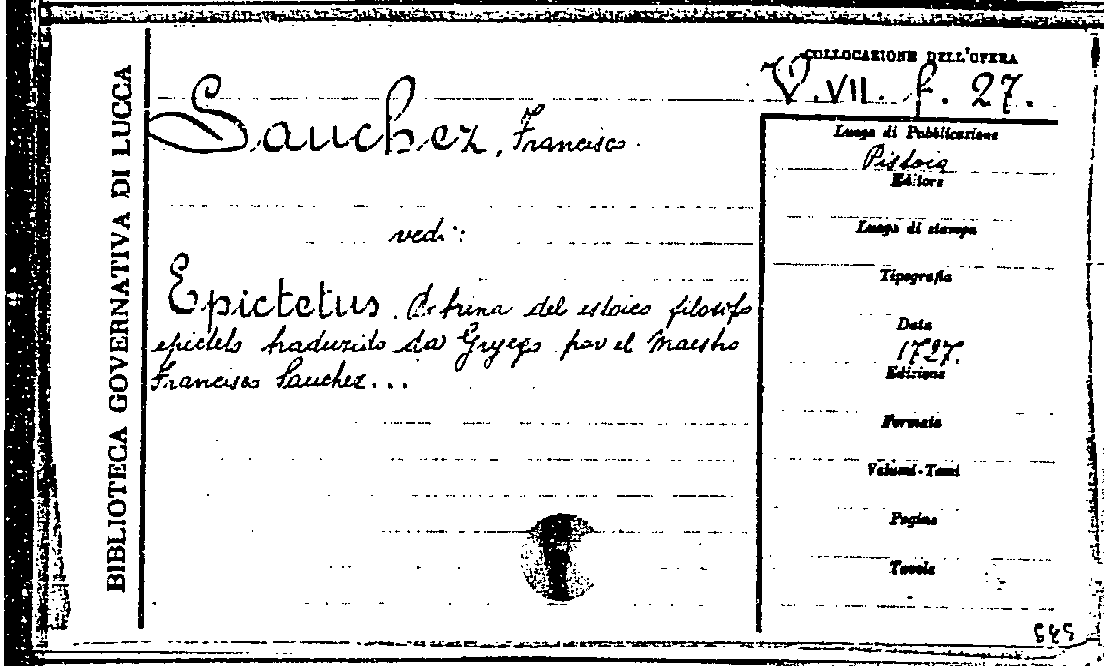 BIBLIOTECA GOVERNATIVA DI LUCCA
COLLOCAZIONE DELL'OPERA
V. VII. f. 27.
Sanchez, Francisco.
vedi:
Epictetus. Dotrina del estoico filosofo
epicteto traduzido da Gryego por el Maestro
Francisco Sanchez...
Luogo di Pubblicazione
Pistoia
Editore
Luogo di stampa
Tipografia
Data
1727.
Edizione
Formato
Volumi-Tomi
Pagine
Tavole